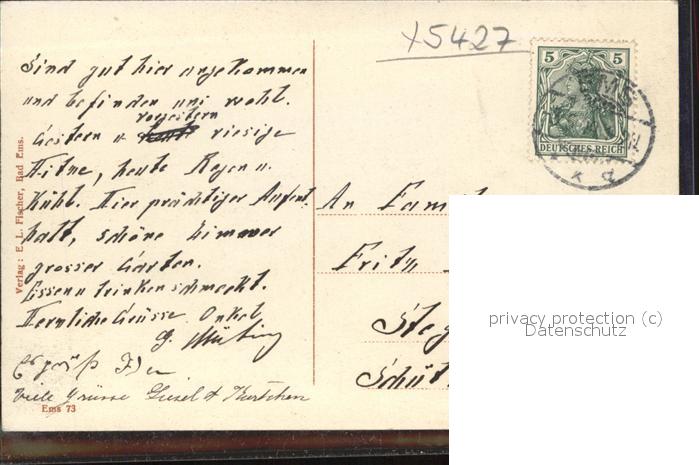 x5427
5 5
DEUTSCHES REICH
EMS
Sind gut hier angekommen
und befinden uns wohl.
vorgestern
Gestern u. riesige
Hitze, heute Regen u.
Kühl. Hier prächtiger Aufent-
halt, schöne Zimmer
grosser Garten.
Essen u trinken schmeckt.
Herzliche Grüsse. Onkel
G.
Viele Grüsse Liesel & Kurtchen
Ems 73
Verlag: E. L. Fischer, Bad Ems.
An Famil
Fritz
Steg
Schüt
privacy protection (c)
Datenschutz